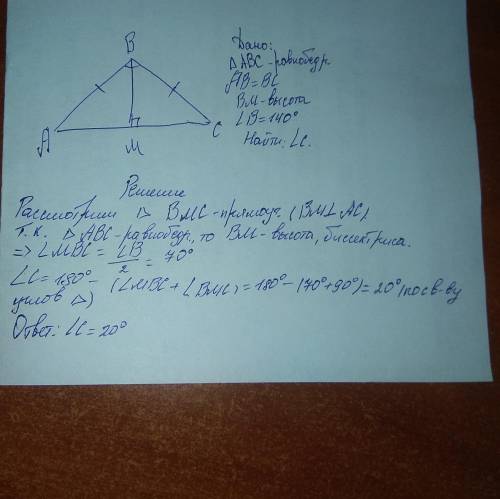 B
A
C
M
Дано:
△ABC-равнобедр
AB=BC
BM-высота
∠B=140°
Найти: ∠C.
Решение
Рассмотрим △ BMC-прямоуг. (BM⊥AC)
т.к. △ ABC-равнобедр., то BM-высота, биссектриса.
=> ∠MBC = ∠B/2 = 70°
∠C=180°- (∠MBC+∠BMC)=180°-(70°+90°)=20°(по св-ву
углов △)
Ответ: ∠C=20°